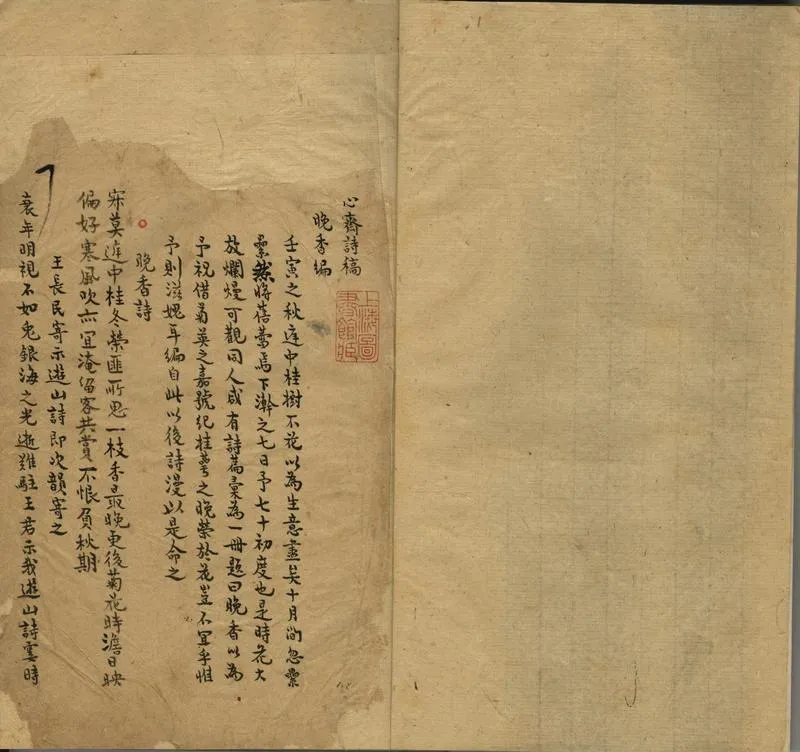 心齋詩稿
晚香編
上海圖書館藏
壬寅之秋庭中桂樹不花以為生意盡矣十月間忽纍
纍然將蓓蕾焉下澣之七日予七十初度也是時花大
放爛熳可觀同人咸有詩篇彙為一冊題曰晚香以為
予祝借菊英之嘉號紀桂萼之晚榮於花豈不宜乎惟
予則滋媿耳編自此以後詩漫以是命之
晚香詩
寂莫庭中桂冬榮匪所思一枝香最晚更後菊花時澹日映
偏好寒風吹亦宜淹留客共賞不恨負秋期
王長民寄示遊山詩即次韻寄之
衰年明視不如兔銀海之光逝難駐王君示我遊山詩霎時